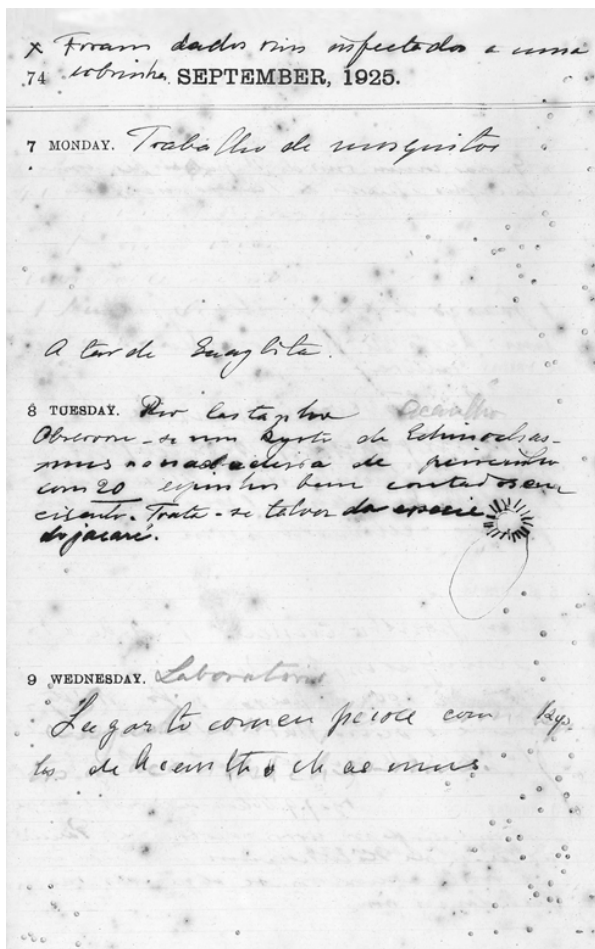 x Foram dados rins infectados a uma
74 cobrinha. SEPTEMBER, 1925.
7 MONDAY. Trabalho de mosquitos
A tarde
8 TUESDAY. Rio
Observou-se um Kysto de Echinochas-
mus na nadadeira de
com 20 espinhos bem contados em
cisento. Trata-se talvez da especie
do jacaré.
9 WEDNESDAY. Laboratorio
Lagarto comeu peixe com Kys-
tos de Acanthochasmus